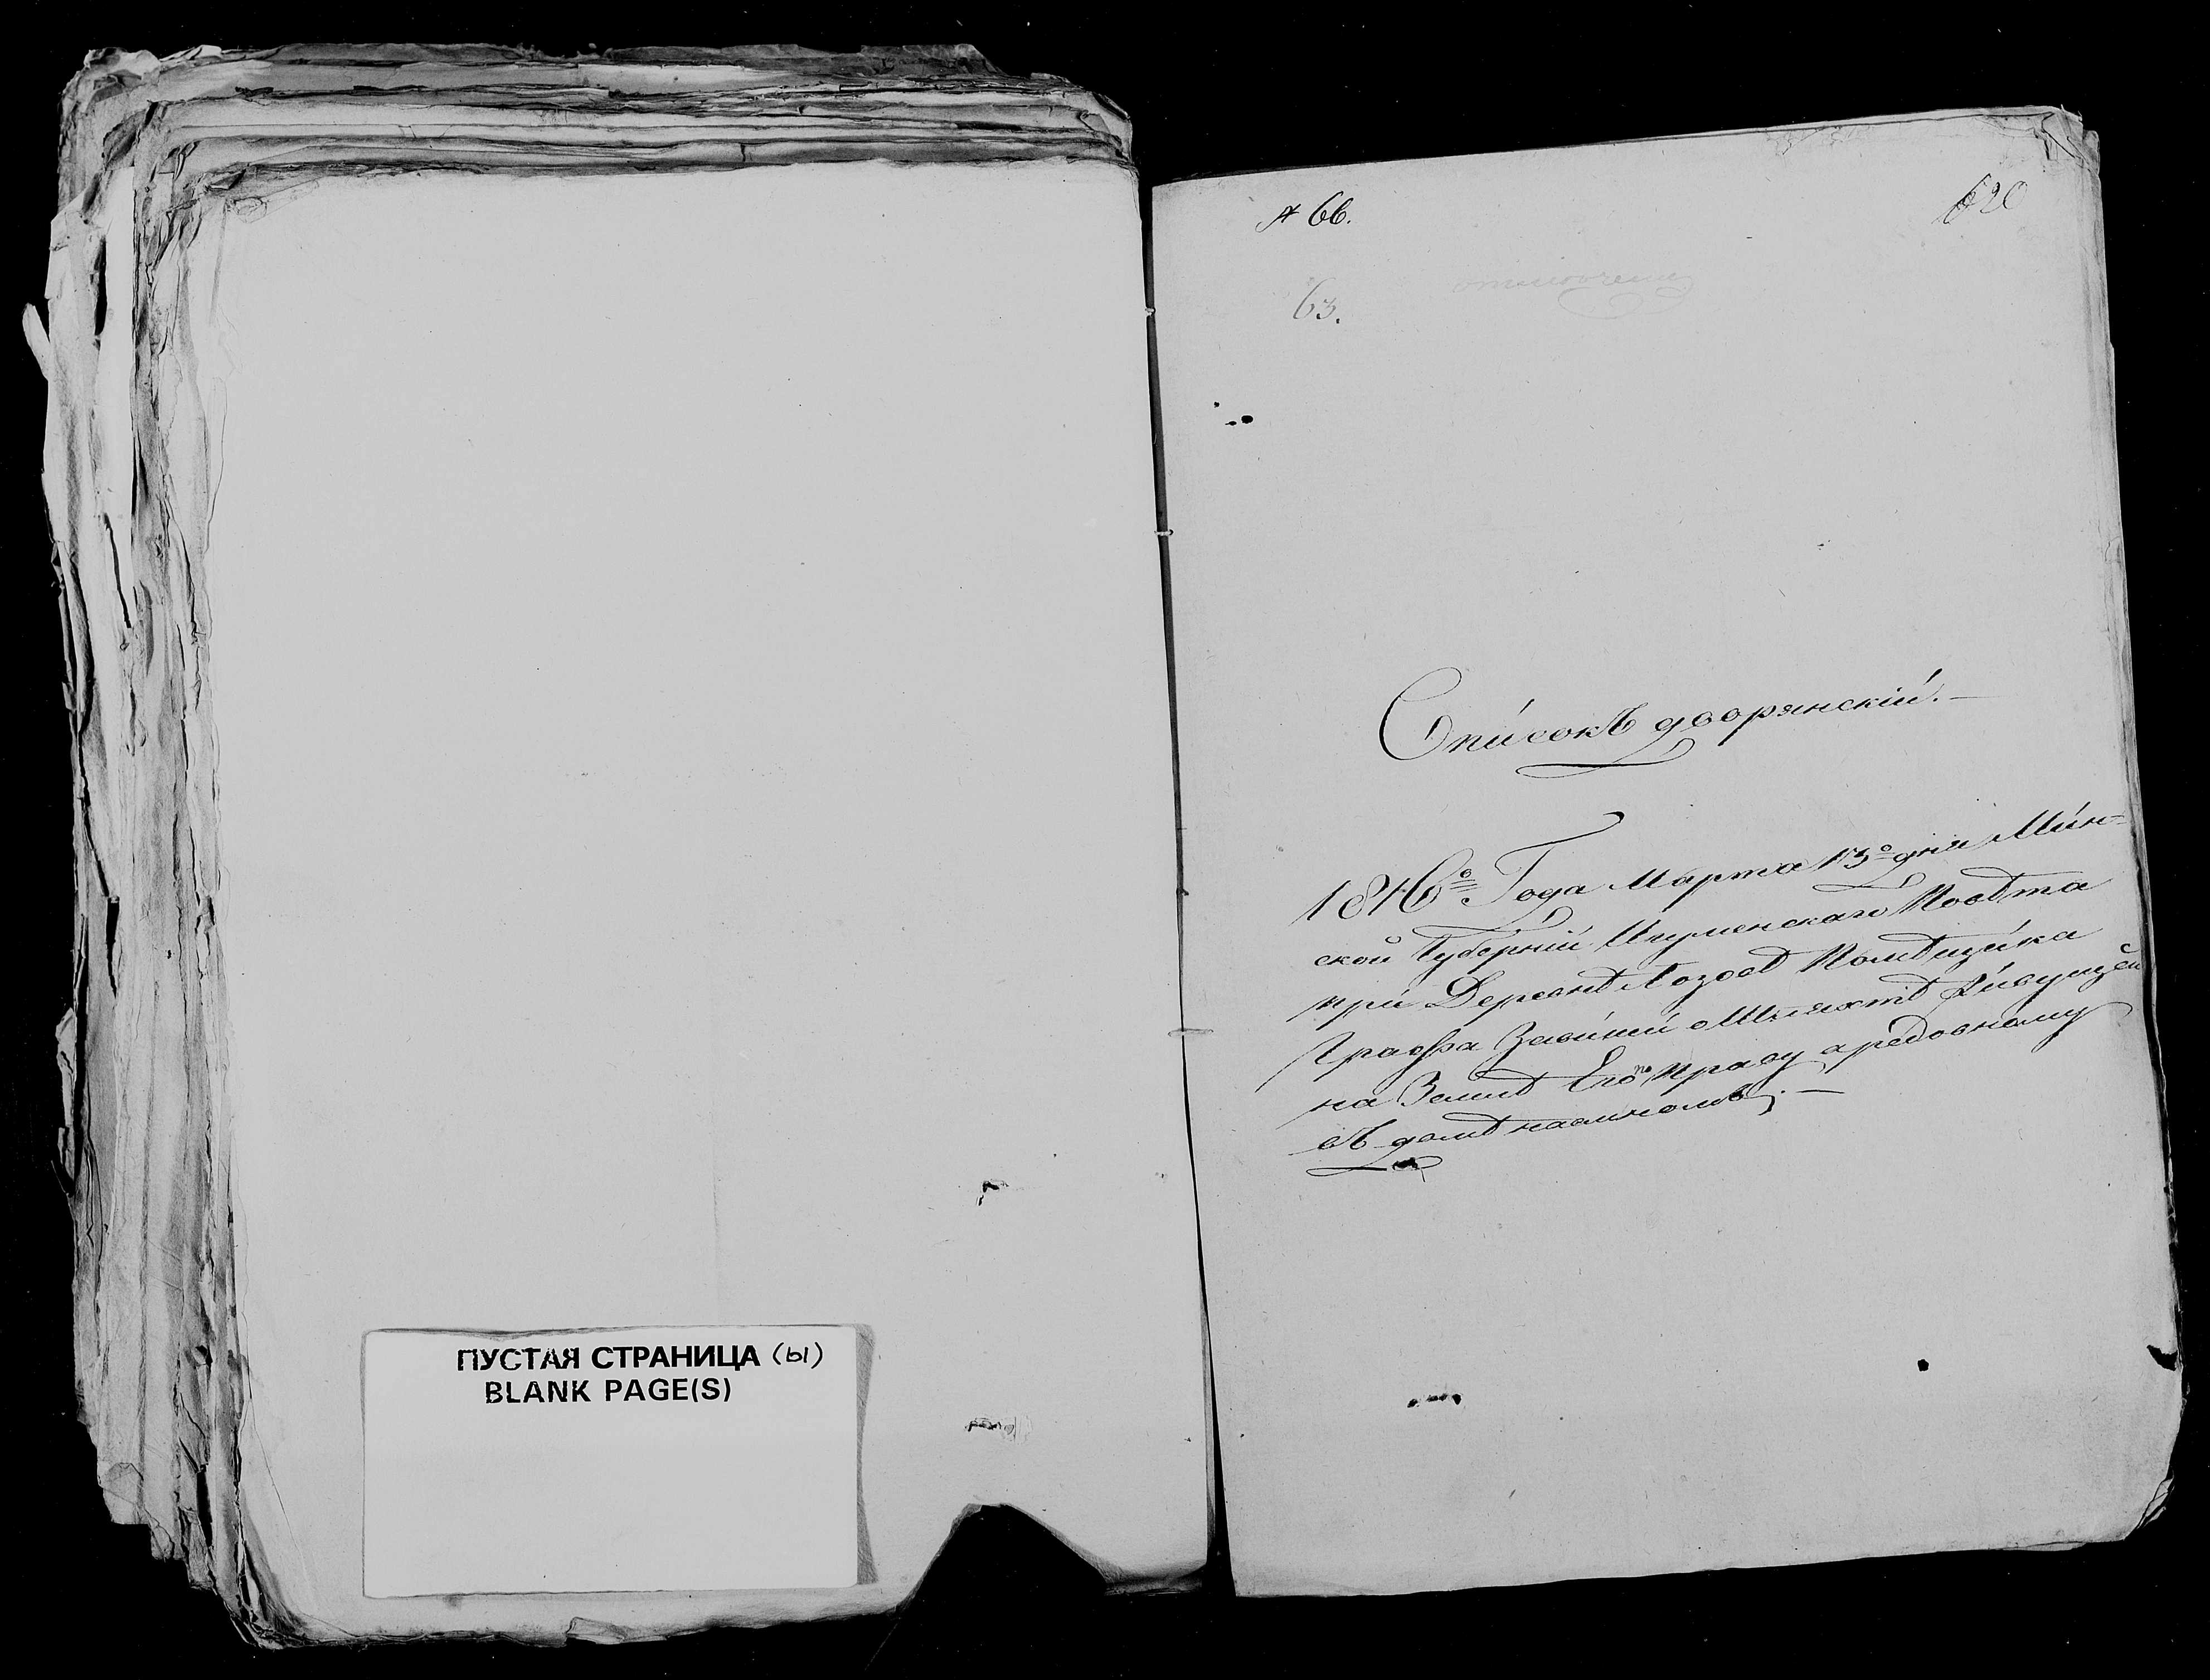 ПУСТАЯ СТРАНИЦА (ы)
BLANK PAGE(S)
№ 66.
620
63.
Списокъ дворянскій.—
1816º Года Марта 13º дня Мин=
ской Губерніи Игуменскаго Повѣта
при Деревнѣ Лозовѣ Помѣщика
Графа Завиши о Шляхтѣ Живущей
на Землѣ Его по праву
въ домѣ наемномъ.—